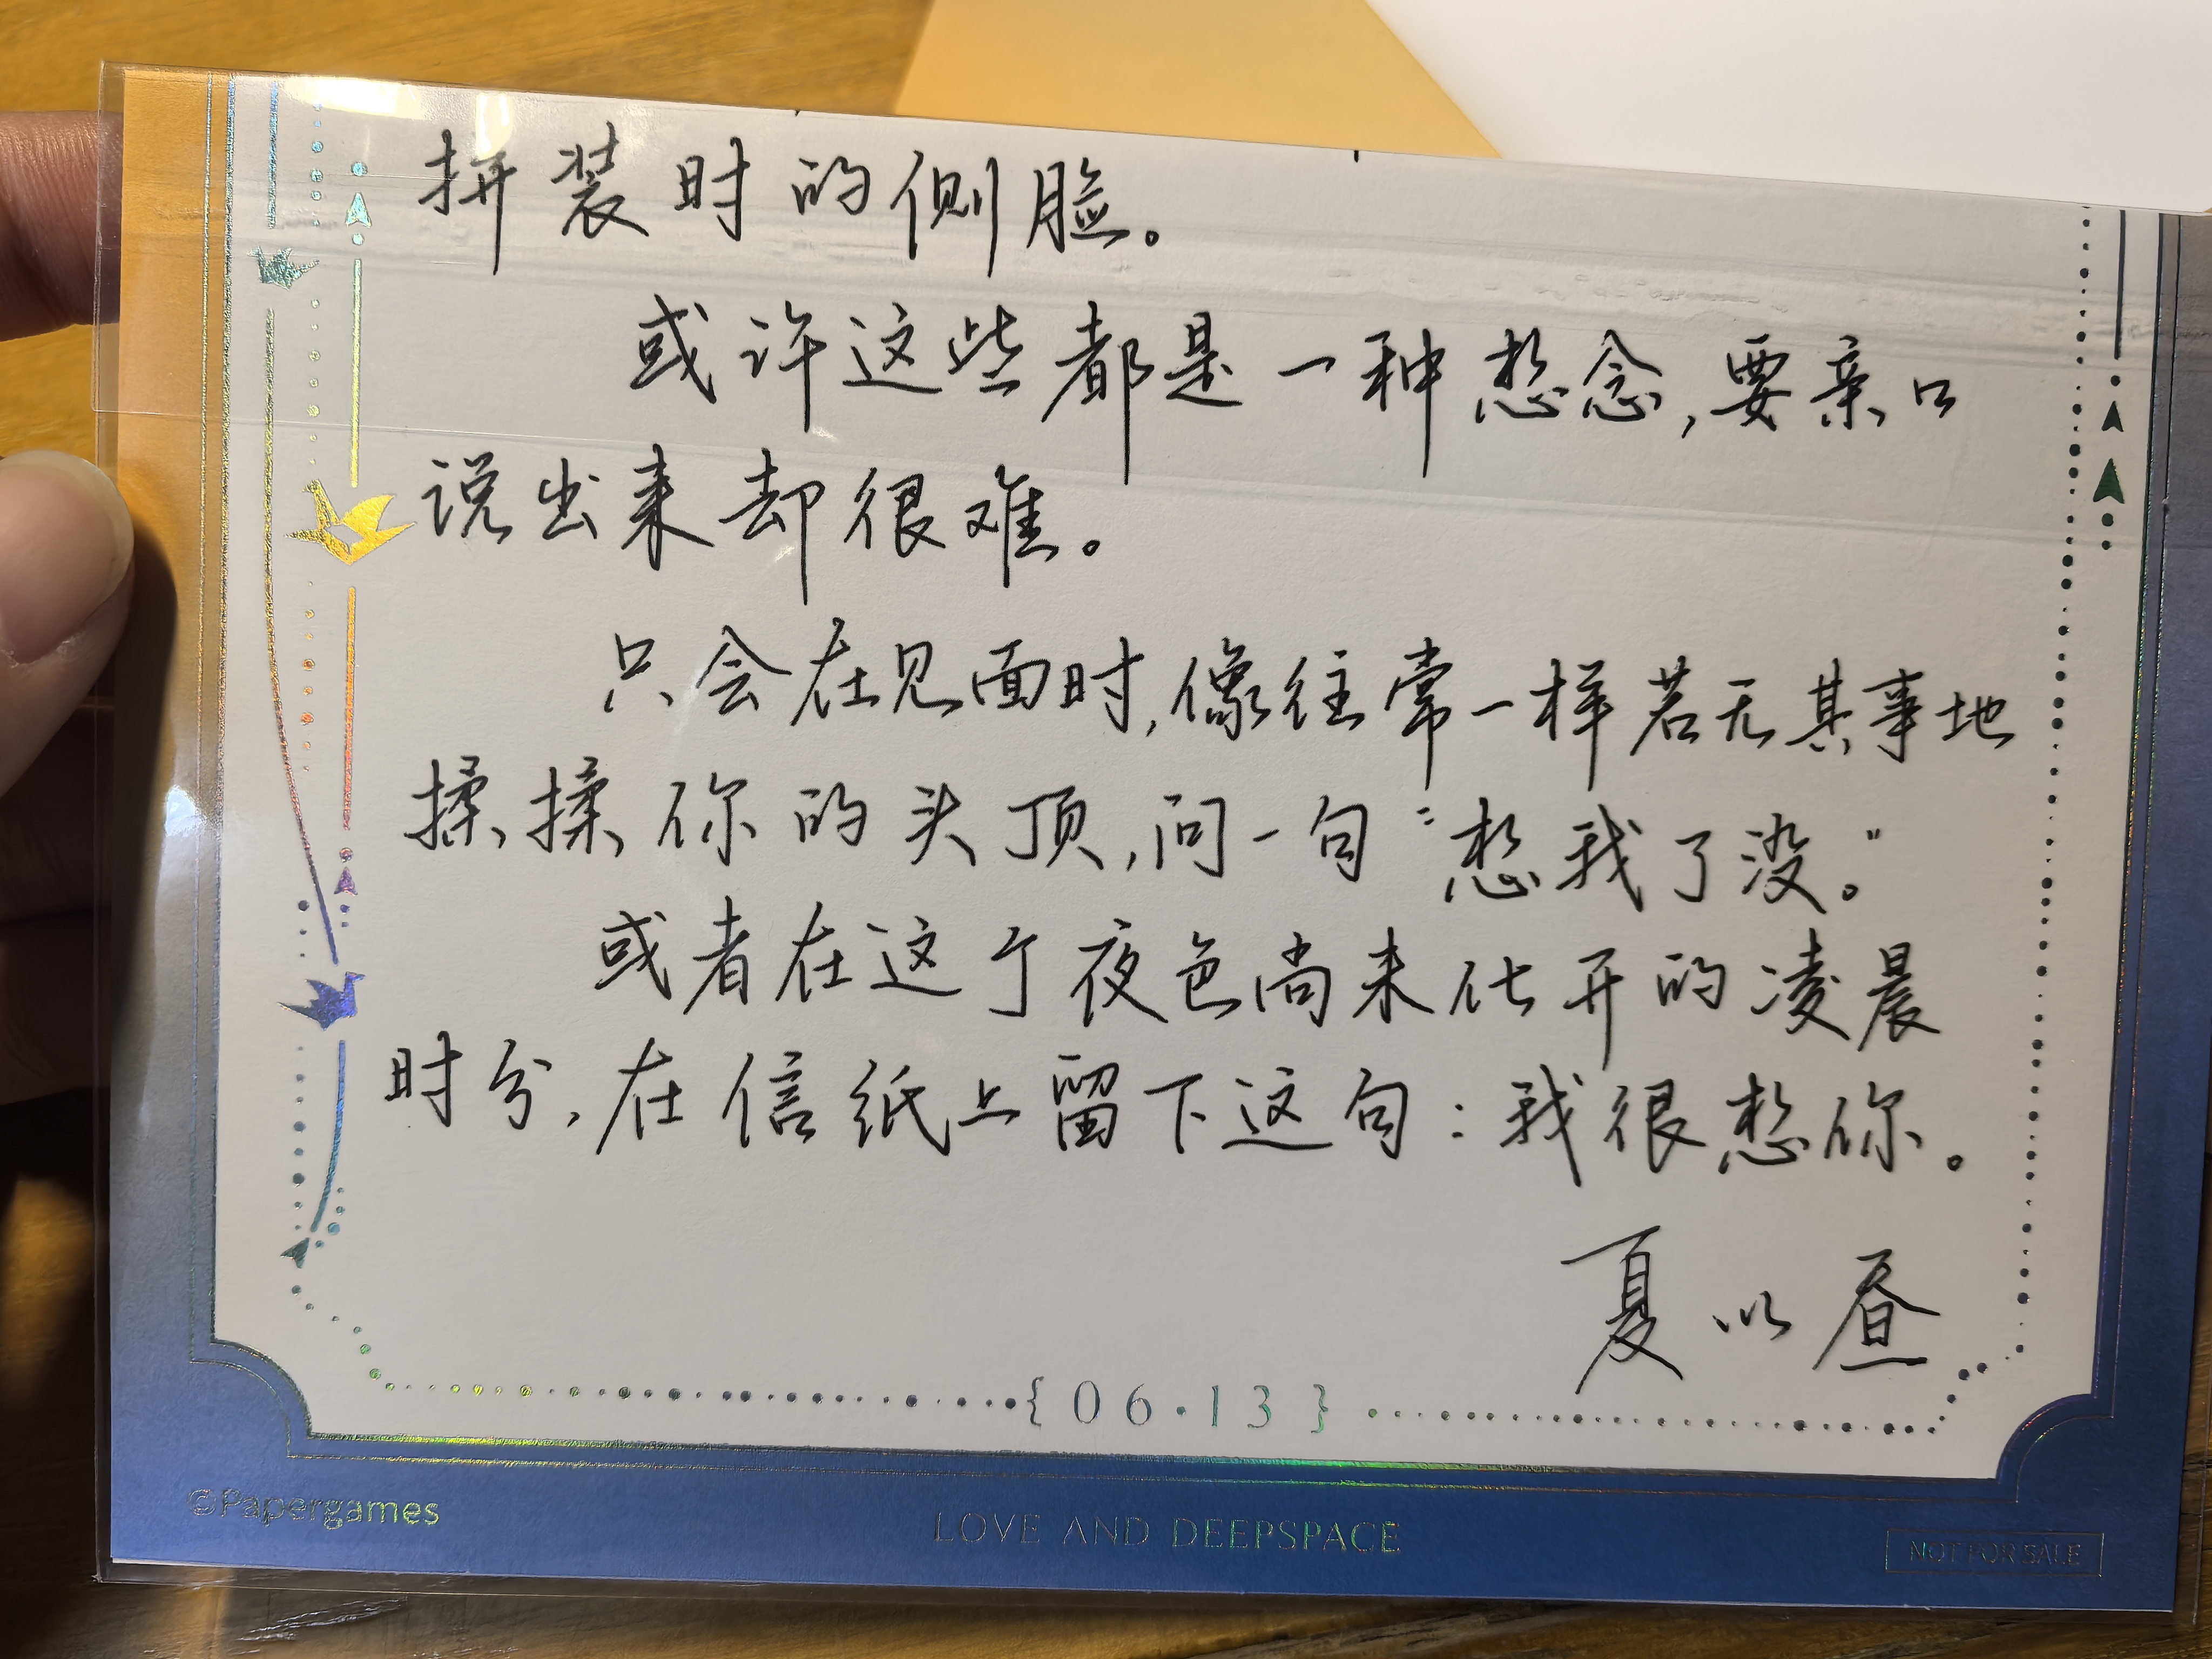 拼装时的侧脸。
或许这些都是一种想念,要亲口
说出来却很难。
只会在见面时,像往常一样若无其事地
揉揉你的头顶,问一句“想我了没。”
或者在这个夜色尚未化开的凌晨
时分,在信纸上留下这句:我很想你。
夏以昼
{06.13}
©Papergames
LOVE AND DEEPSPACE
NOT FOR SALE